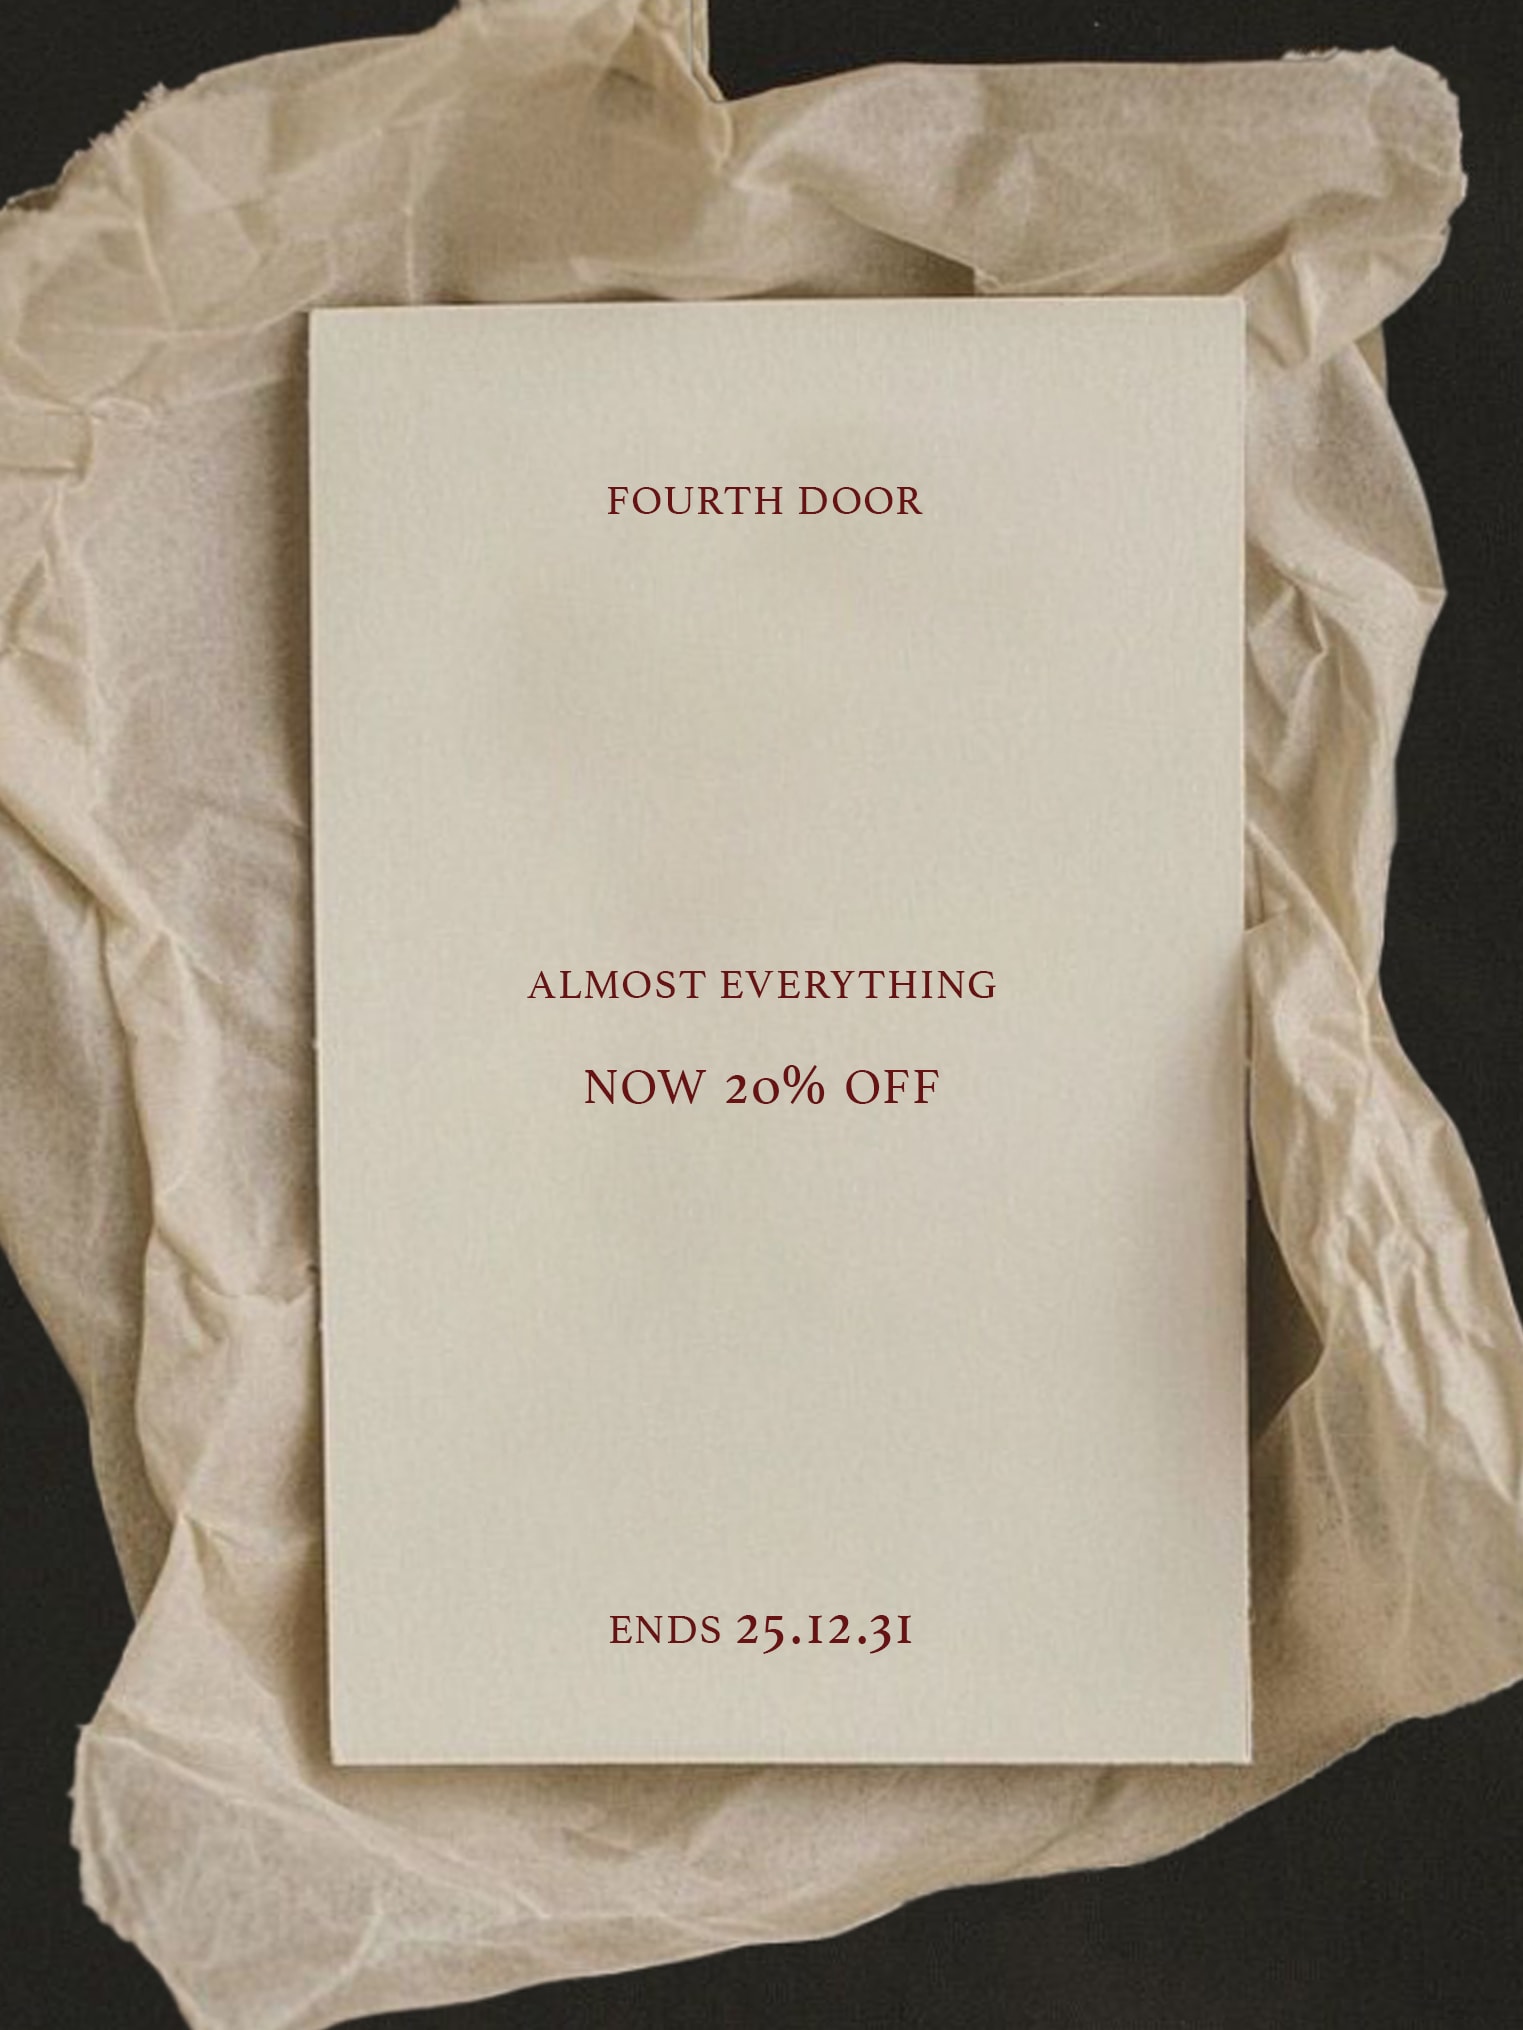 FOURTH DOOR
ALMOST EVERYTHING
NOW 20% OFF
ENDS 25.12.31